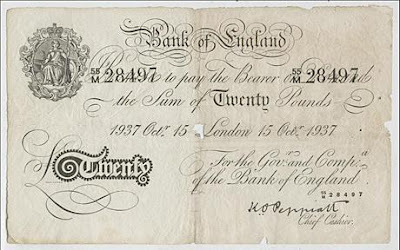 Bank of England
55/M 28497 to pay the Bearer on 55/M 28497
the Sum of Twenty Pounds
1937 Octr. 15 London 15 Octr. 1937
For the Govr. and Compa.
£ Twenty of the Bank of England
55/M 28497
K.O. Peppiatt
Chief Cashier.